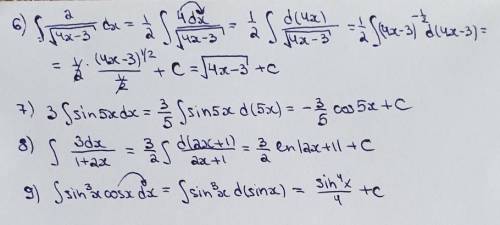 6) ∫ 2/√(4x-3) dx = 1/2 ∫ 4dx/√(4x-3) = 1/2 ∫ d(4x)/√(4x-3) = 1/2 ∫(4x-3)^(-1/2) d(4x-3) =
= 1/2 · (4x-3)^(1/2)/(1/2) + C = √(4x-3) + C
7) 3 ∫ sin5x dx = 3/5 ∫ sin5x d(5x) = -3/5 cos5x + C
8) ∫ 3dx/(1+2x) = 3/2 ∫ d(2x+1)/(2x+1) = 3/2 ln|2x+1| + C
9) ∫ sin³x cosx dx = ∫ sin³x d(sinx) = sin⁴x/4 + C